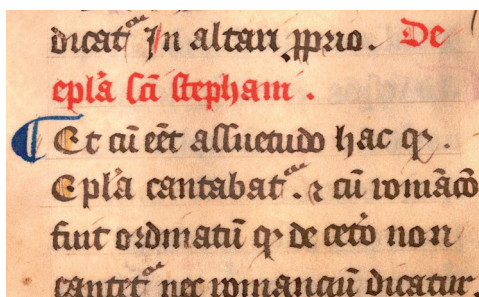 dicat᷑ In altari ꝓprio. De
epl̃a sc̃i stephani.
Et cũ eẽt assuetudo hac qꝫ.
Epl̃a cantabat᷑. ⁊ cũ romãcõ
fuit ordinatũ qꝫ de cetõ non
cantet᷑ nec romanciũ dicatur